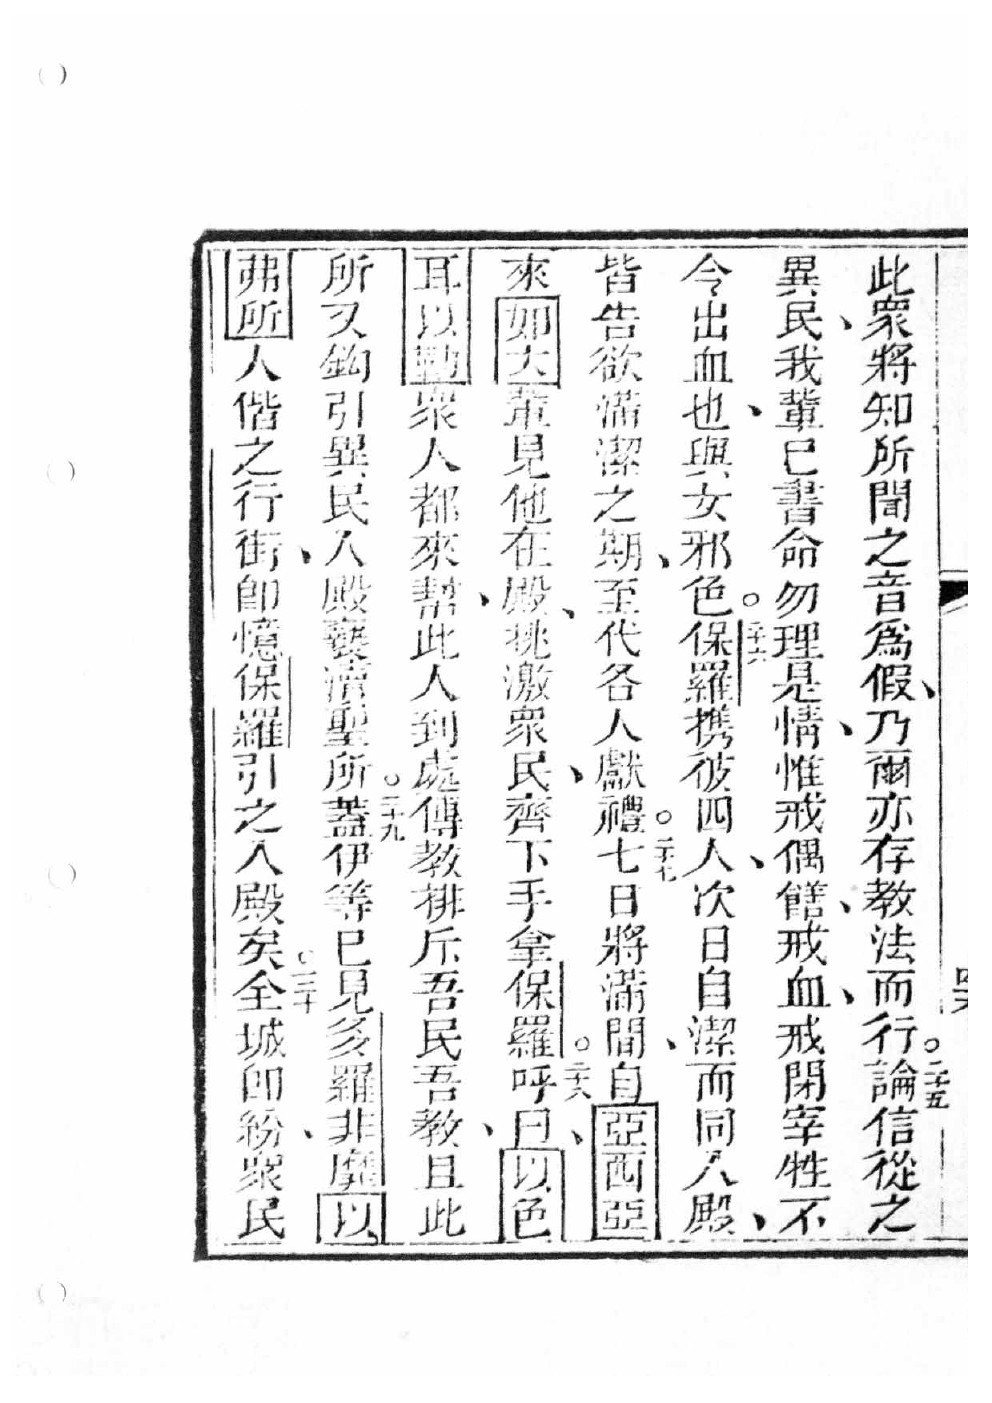 此衆將知所聞之音爲假、乃爾亦存教法而行。二十五論信從之
異民、我輩已書命勿理是情、惟戒偶饍、戒血、戒閉宰牲不
令出血也、與女邪色。二十六保羅携彼四人、次日自潔而同入殿、
皆告欲滿潔之期、至代各人獻禮。二十七七日將滿間、自亞西亞
來如大輩見他在殿、挑激衆民、齊下手拿保羅。二十八呼曰、以色
耳以勒衆人都來幫、此人到處傳教排斥吾民吾教、且此
所又鈎引異民入殿褻瀆聖所。二十九蓋伊等已見多羅非摩以
弗所人偕之行街、即憶保羅引之入殿矣。三十全城即紛、衆民